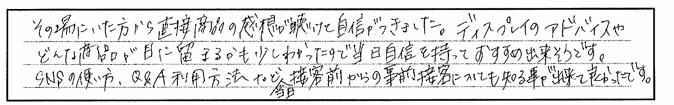 その場にいた方から直接商品の感想が聴けて自信がつきました。ディスプレイのアドバイスや
どんな商品が目に留まるかも少しわかったので当日自信を持っておすすめ出来そうです。
SNSの使い方、Q&A利用方法など接客前からの事前接客についても知る事が出来て良かったです。
今回